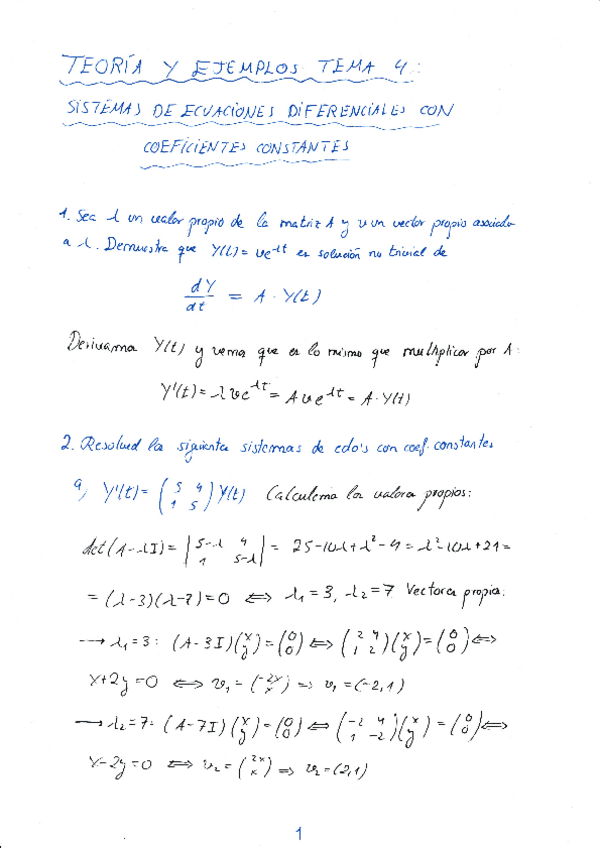 TEORÍA Y EJEMPLOS TEMA 4:
SISTEMAS DE ECUACIONES DIFERENCIALES CON
COEFICIENTES CONSTANTES
1. Sea λ un valor propio de la matriz A y v un vector propio asociado
a λ. Demuestra que Y(t) = ve^{λt} es solución no trivial de
dY/dt = A · Y(t)
Derivamos Y(t) y vemos que es lo mismo que multiplicar por A:
Y'(t) = λve^{λt} = Ave^{λt} = A·Y(t)
2. Resolved los siguientes sistemas de edo's con coef. constantes
a) Y'(t) = (5 4; 1 5) Y(t) Calculemos los valores propios:
det(A-λI) = |5-λ 4; 1 5-λ| = 25-10λ+λ²-4 = λ²-10λ+21 =
= (λ-3)(λ-7) = 0 ⇔ λ₁=3, λ₂=7 Vectores propios:
→ λ₁=3: (A-3I)(x; y) = (0; 0) ⇔ (2 4; 1 2)(x; y) = (0; 0) ⇔
x+2y=0 ⇔ v₁ = (-2x; x) ⇒ v₁ = (-2,1)
→ λ₂=7: (A-7I)(x; y) = (0; 0) ⇔ (-2 4; 1 -2)(x; y) = (0; 0) ⇔
x-2y=0 ⇔ v₂ = (2x; x) ⇒ v₂ = (2,1)
1